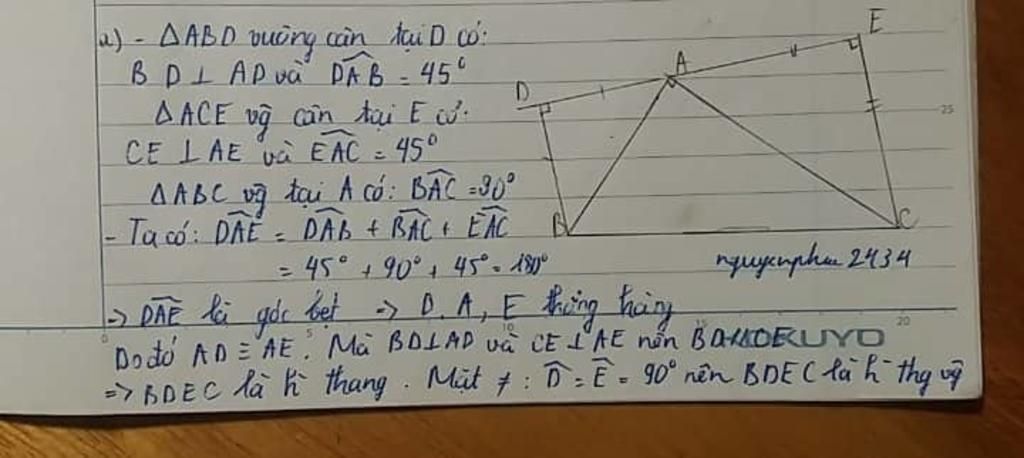 a) - ΔABD vuông cân tại D có:
BD ⊥ AD và DAB = 45°
ΔACE vg cân tại E có:
CE ⊥ AE và EAC = 45°
ΔABC vg tại A có: BAC = 90°
- Ta có: DAE = DAB + BAC + EAC
= 45° + 90° + 45° = 180°
→ DAE là góc bẹt → D, A, E thẳng hàng
Do đó AD ≡ AE. Mà BD ⊥ AD và CE ⊥ AE nên BD
⇒ BDEC là h thang. Mặt ≠: D = E = 90° nên BDEC là h thg vg
D
A
E
B
C
nguyenphu 2434
KUYO
0
5
10
15
20
25